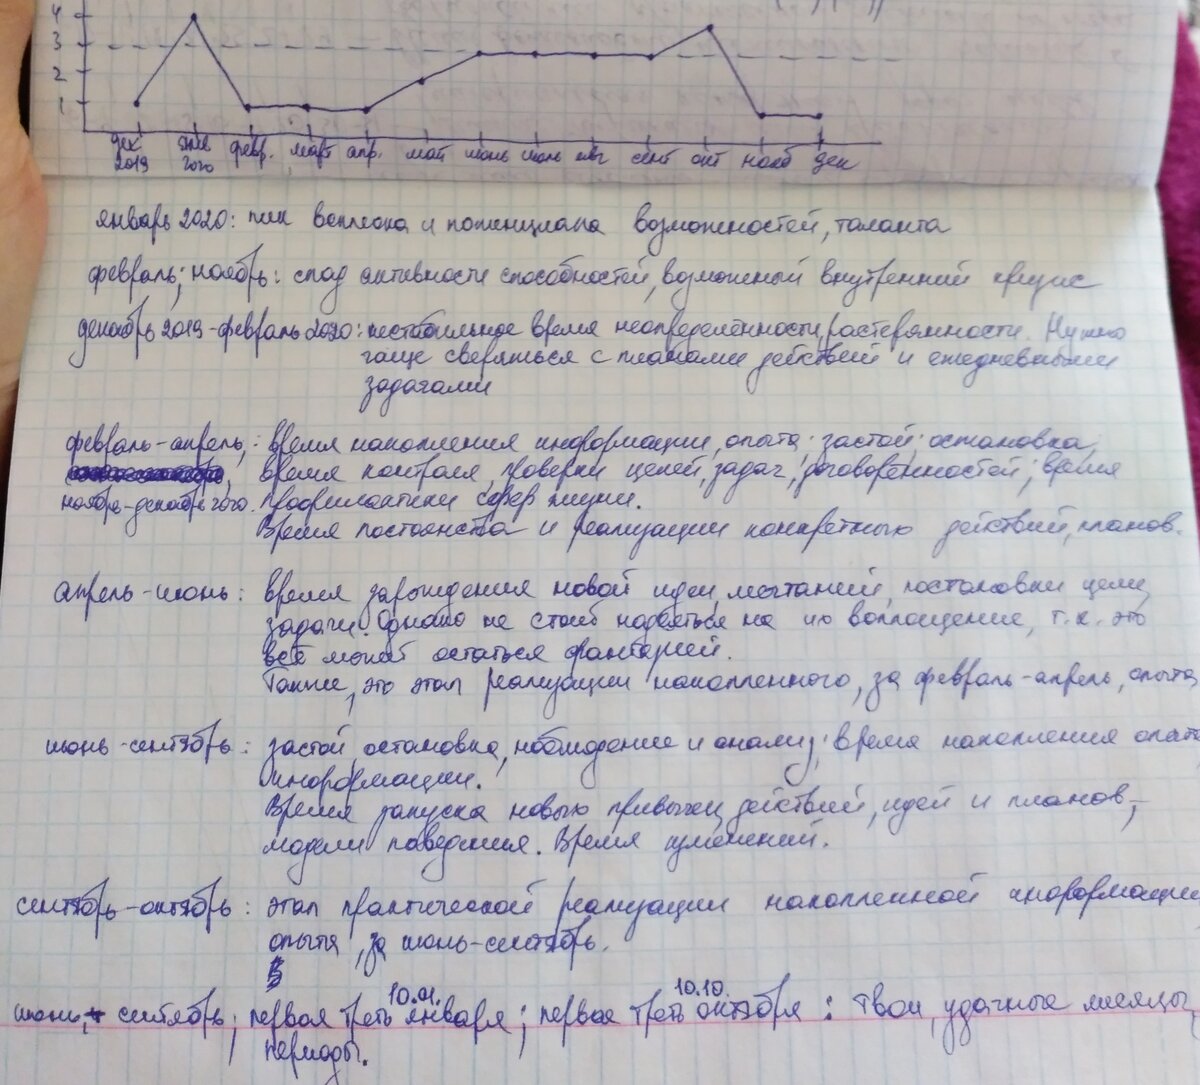 4
3
2
1
дек янв февр. март апр. май июнь июль авг сент окт нояб дек
2019 2020
январь 2020: пик всплеска и потенциала возможностей, таланта
февраль; ноябрь: спад активности способностей, возможный внутренний кризис
декабрь 2019-февраль 2020: нестабильное время неопределённости, растерянности. Нужно
чаще сверяться с планами действий и ежедневными
задачами
февраль-апрель,: время накопления информации, опыта; застой; остановка,
время контроля, проверки целей, задач, договорённостей; время
ноябрь-декабрь 2020. профилактики сфер жизни.
Время постоянства и реализации конкретных действий, планов.
апрель-июнь: время зарождения новой идеи, мечтаний, постановки цели,
задачи. Однако не стоит надеяться на их воплощение, т.к. это
всё может остаться фантазией.
Также, это этап реализации накопленного, за февраль-апрель, опыта
июнь-сентябрь: застой, остановка, наблюдение и анализ; время накопления опыта
информации.
Время запуска новых привычек, действий, идей и планов,
модели поведения. Время изменений.
сентябрь-октябрь: этап практической реализации накопленной информации
опыта, за июнь-сентябрь.
10.01. 10.10.
июнь, сентябрь; первая треть января; первая треть октября: твои, удачные месяцы,
периоды.